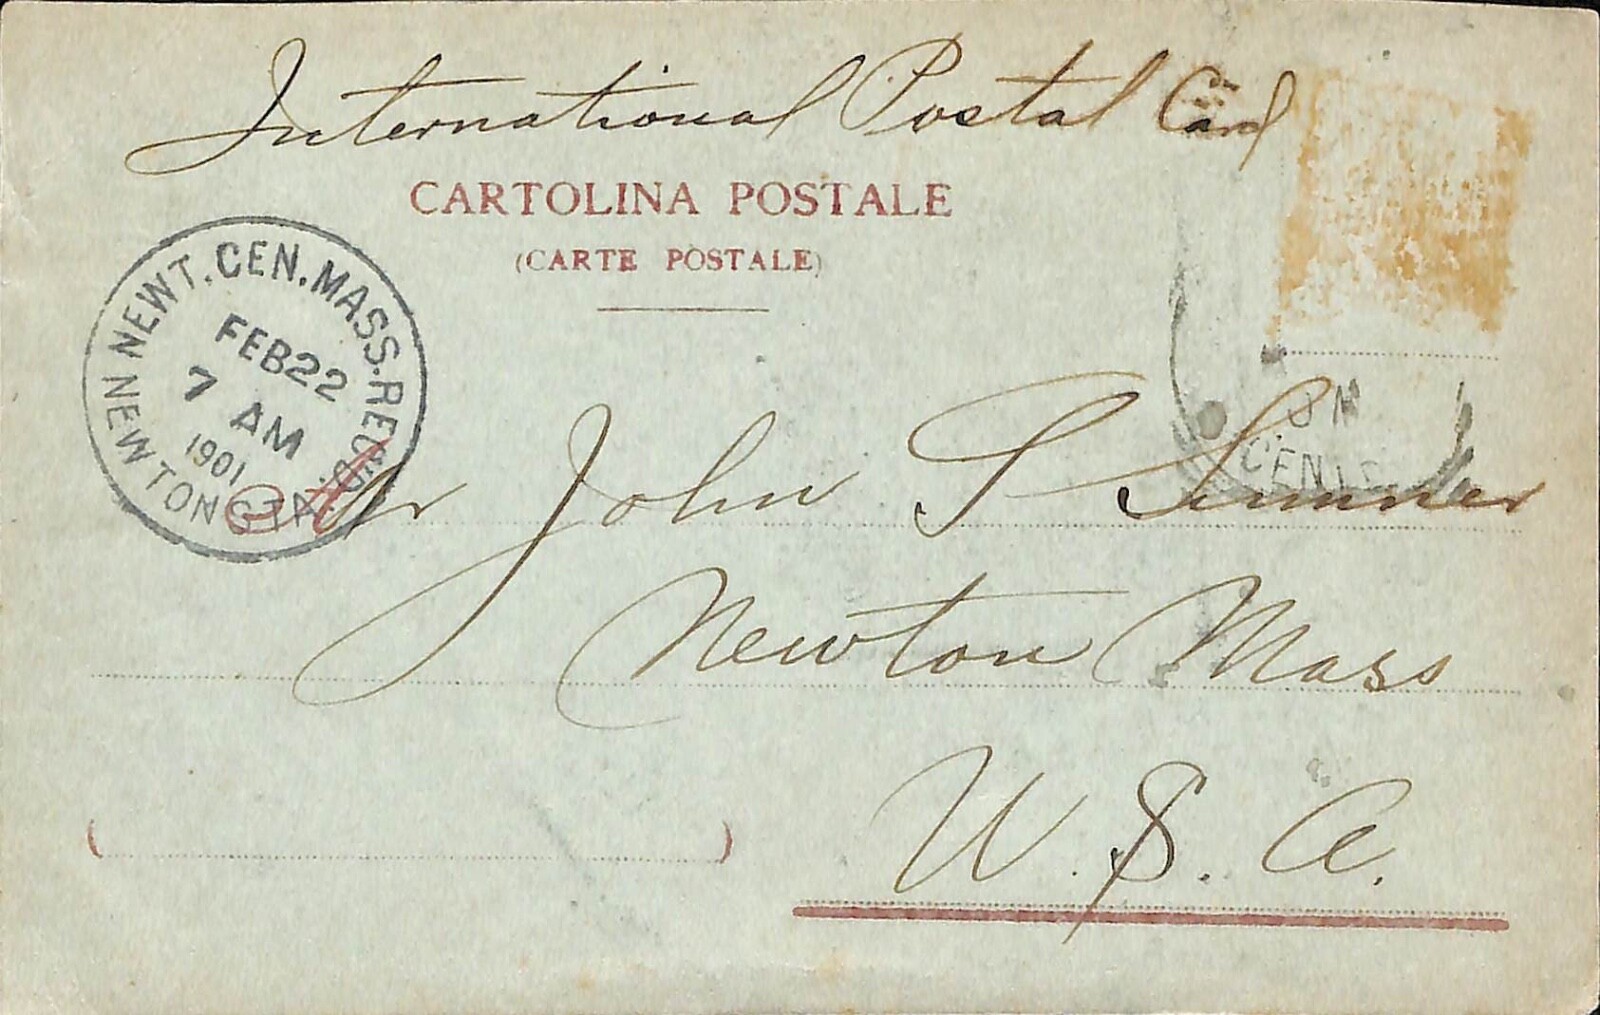 International Postal Card
CARTOLINA POSTALE
(CARTE POSTALE)
NEWT. CEN. MASS. REC'D.
FEB 22
7 AM
1901
NEWTON STA.
Mr John S Sumner
Newton Mass
U.S.A.